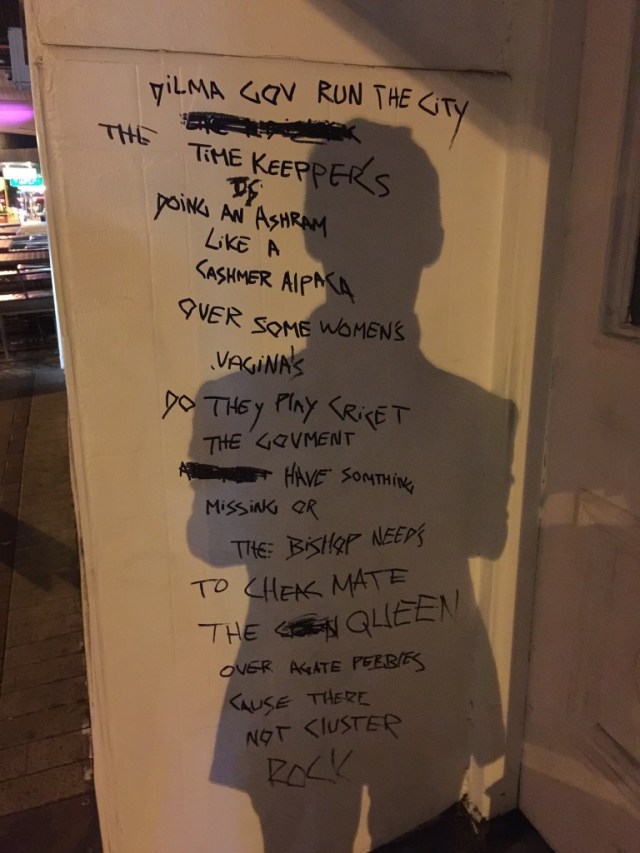 DILMA GOV RUN THE CITY
THE
TIME KEEPPERS
IS
DOING AN ASHRAM
LIKE A
CASHMER AlPACA
OVER SOME WOMENS
VAGINA'S
DO THEY PlAY CRICET
THE GOVMENT
HAVE SOMTHING
MISSING OR
THE BISHOP NEED'S
TO CHEAK MATE
THE QUEEN
OVER AGATE PEBBlES
CAUSE THERE
NOT ClUSTER
ROCK